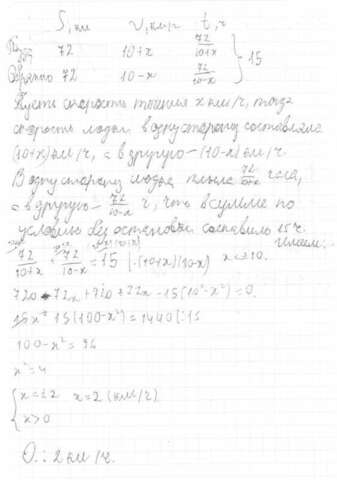 S, км v, км/ч t, ч
По теч 72 10+x 72/(10+x)
Обратно 72 10-x 72/(10-x) } 15
Пусть скорость течения x км/ч, тогда
скорость лодки в одну сторону составляла
(10+x) км/ч, а в другую – (10-x) км/ч.
В одну сторону лодка плыла 72/(10+x) часа,
а в другую – 72/(10-x) ч, что в сумме по
условию без остановки составило 15 ч.
Имеем:
72/(10+x) + 72/(10-x) = 15 | ·(10+x)(10-x) x ≠ ±10.
720 - 72x + 720 + 72x - 15(10²-x²) = 0.
15(100-x²) = 1440 |:15
100-x² = 96
x² = 4
{ x = ±2 x = 2 (км/ч)
x > 0
О.: 2 км/ч.